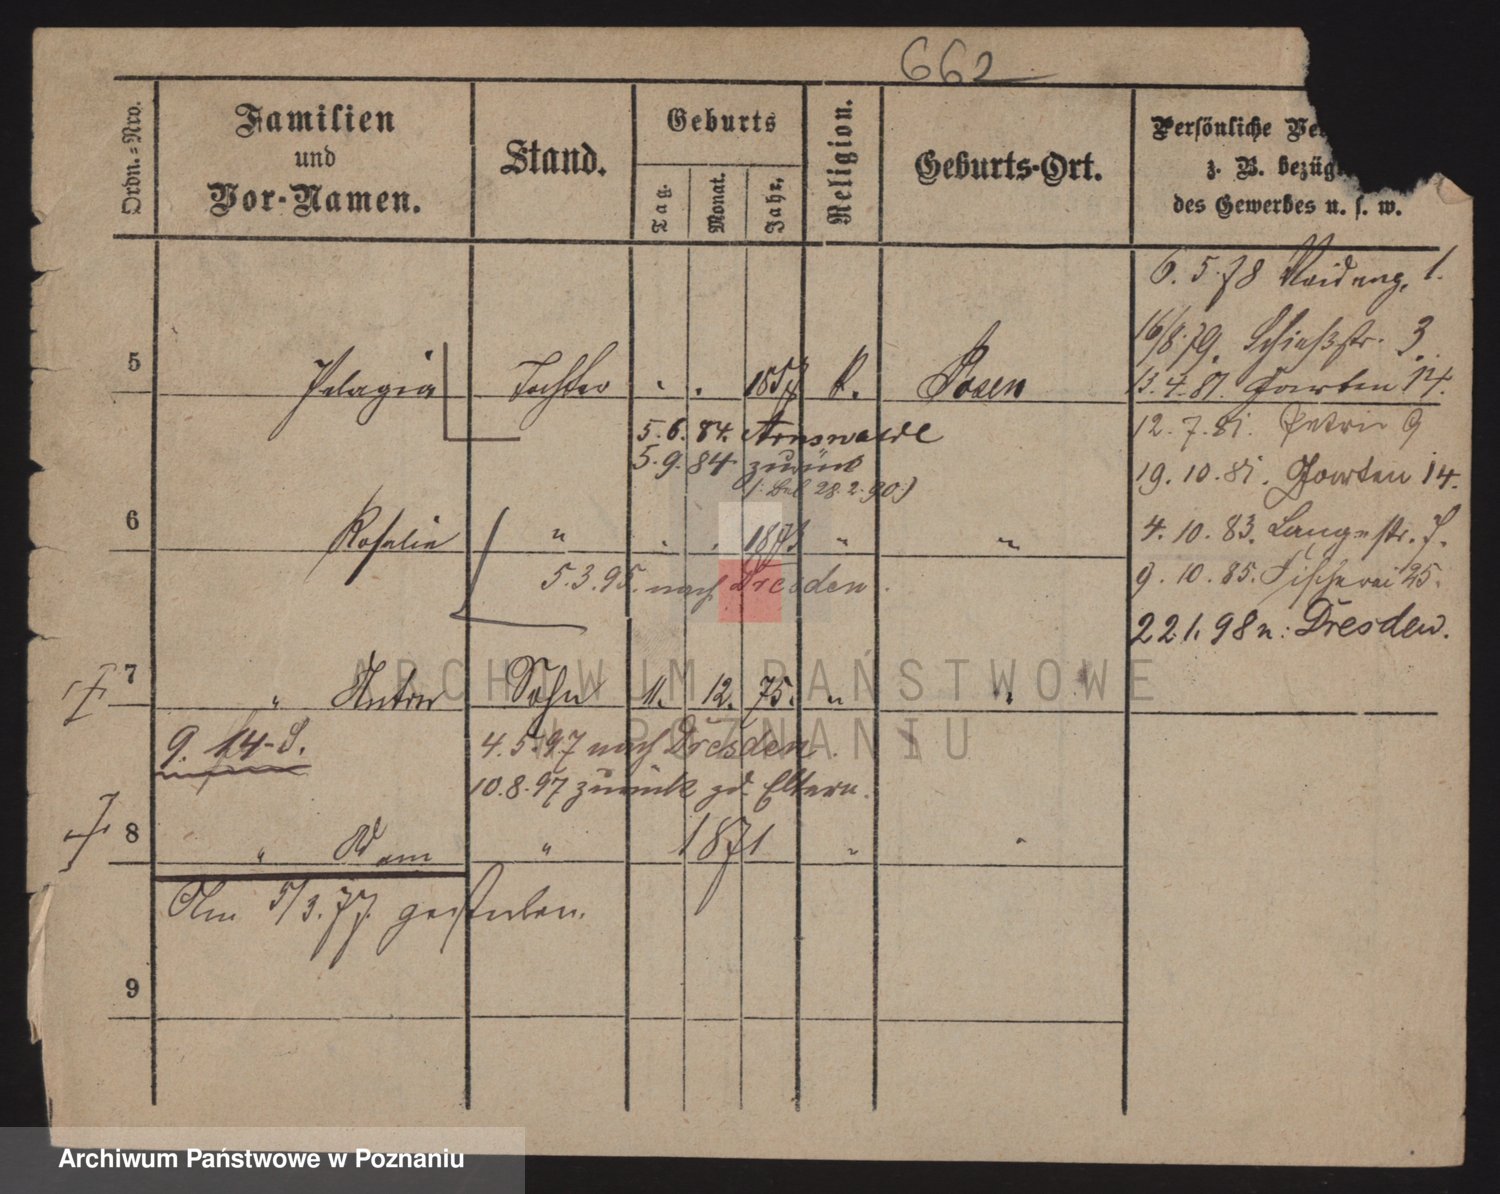 662
Ordn.-Nro.
Familien
und
Vor-Namen.
Stand.
Geburts
Tag.
Monat.
Jahr,
Religion.
Geburts-Ort.
Persönliche Ve
z. B. bezüg
des Gewerbes u. s. w.
6. 5. 78 1.
16/8. 79. Schießstr. 3.
13. 4. 81. Garten 14.
12. 7. 81. Petri 9
19. 10. 81. Garten 14.
4. 10. 83. Langestr. 7.
9. 10. 85. Fischerei 25.
22.1.98 n. Dresden.
5 Pelagia Tochter " " 1857 k. Posen
5. 6. 84. Arnswalde
5. 9. 84 zurück
28. 2. 90.)
6 Rosalie " " " 1873 " "
5. 3. 95. nach Dresden.
7 " Sohn 11. 12. 75. " "
9. 14-S.
4. 5. 97 nach Dresden
10. 8. 97 zurück zd. Eltern.
8 " Adam " 1871 " "
Am 5/3. 77. gestorben.
9
ARCHIWUM PAŃSTWOWE
W POZNANIU
Archiwum Państwowe w Poznaniu